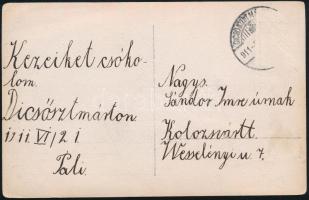 Kezeiket csóko-
lom.
Dicsősztmárton
1911. VI/21
Pali.
Nagys.
Sándor Imre úrnak
Kolozsvártt
Wesselényi u. 7.